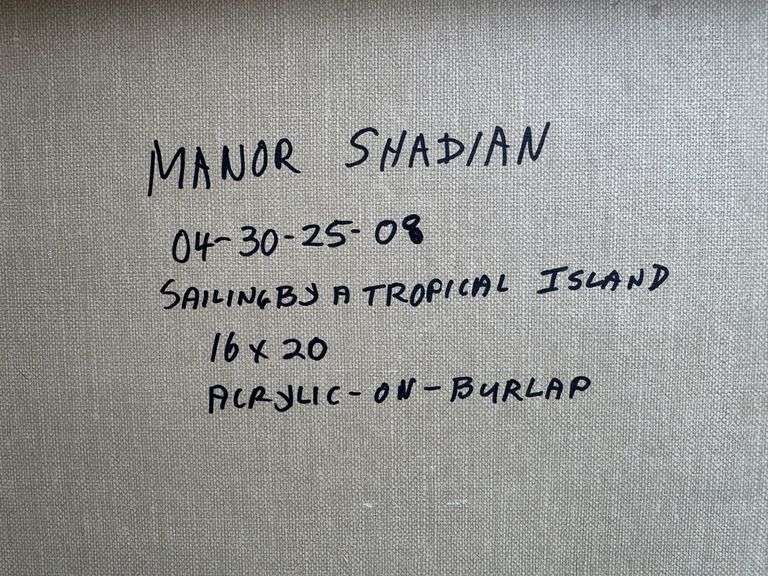 MANOR SHADIAN
04-30-25-08
SAILING BY A TROPICAL ISLAND
16 x 20
ACRYLIC-ON-BURLAP